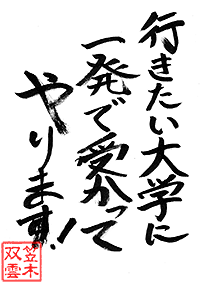 行きたい大学に
一発で受かって
やります！
笠木
双雲